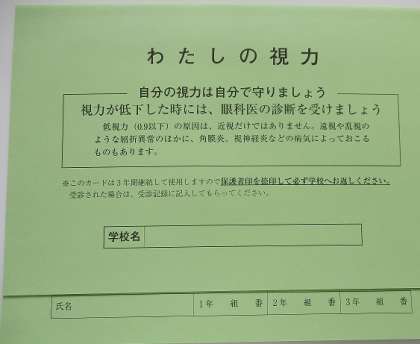 わたしの視力
自分の視力は自分で守りましょう
視力が低下した時には、眼科医の診断を受けましょう
低視力（0.9以下）の原因は、近視だけではありません。遠視や乱視の
ような屈折異常のほかに、角膜炎、視神経炎などの病気によっておこる
ものもあります。
※このカードは3年間継続して使用しますので保護者印を捺印して必ず学校へお返しください。
受診された場合は、受診記録に記入してもらってください。
学校名
氏名 1年 組 番 2年 組 番 3年 組 番